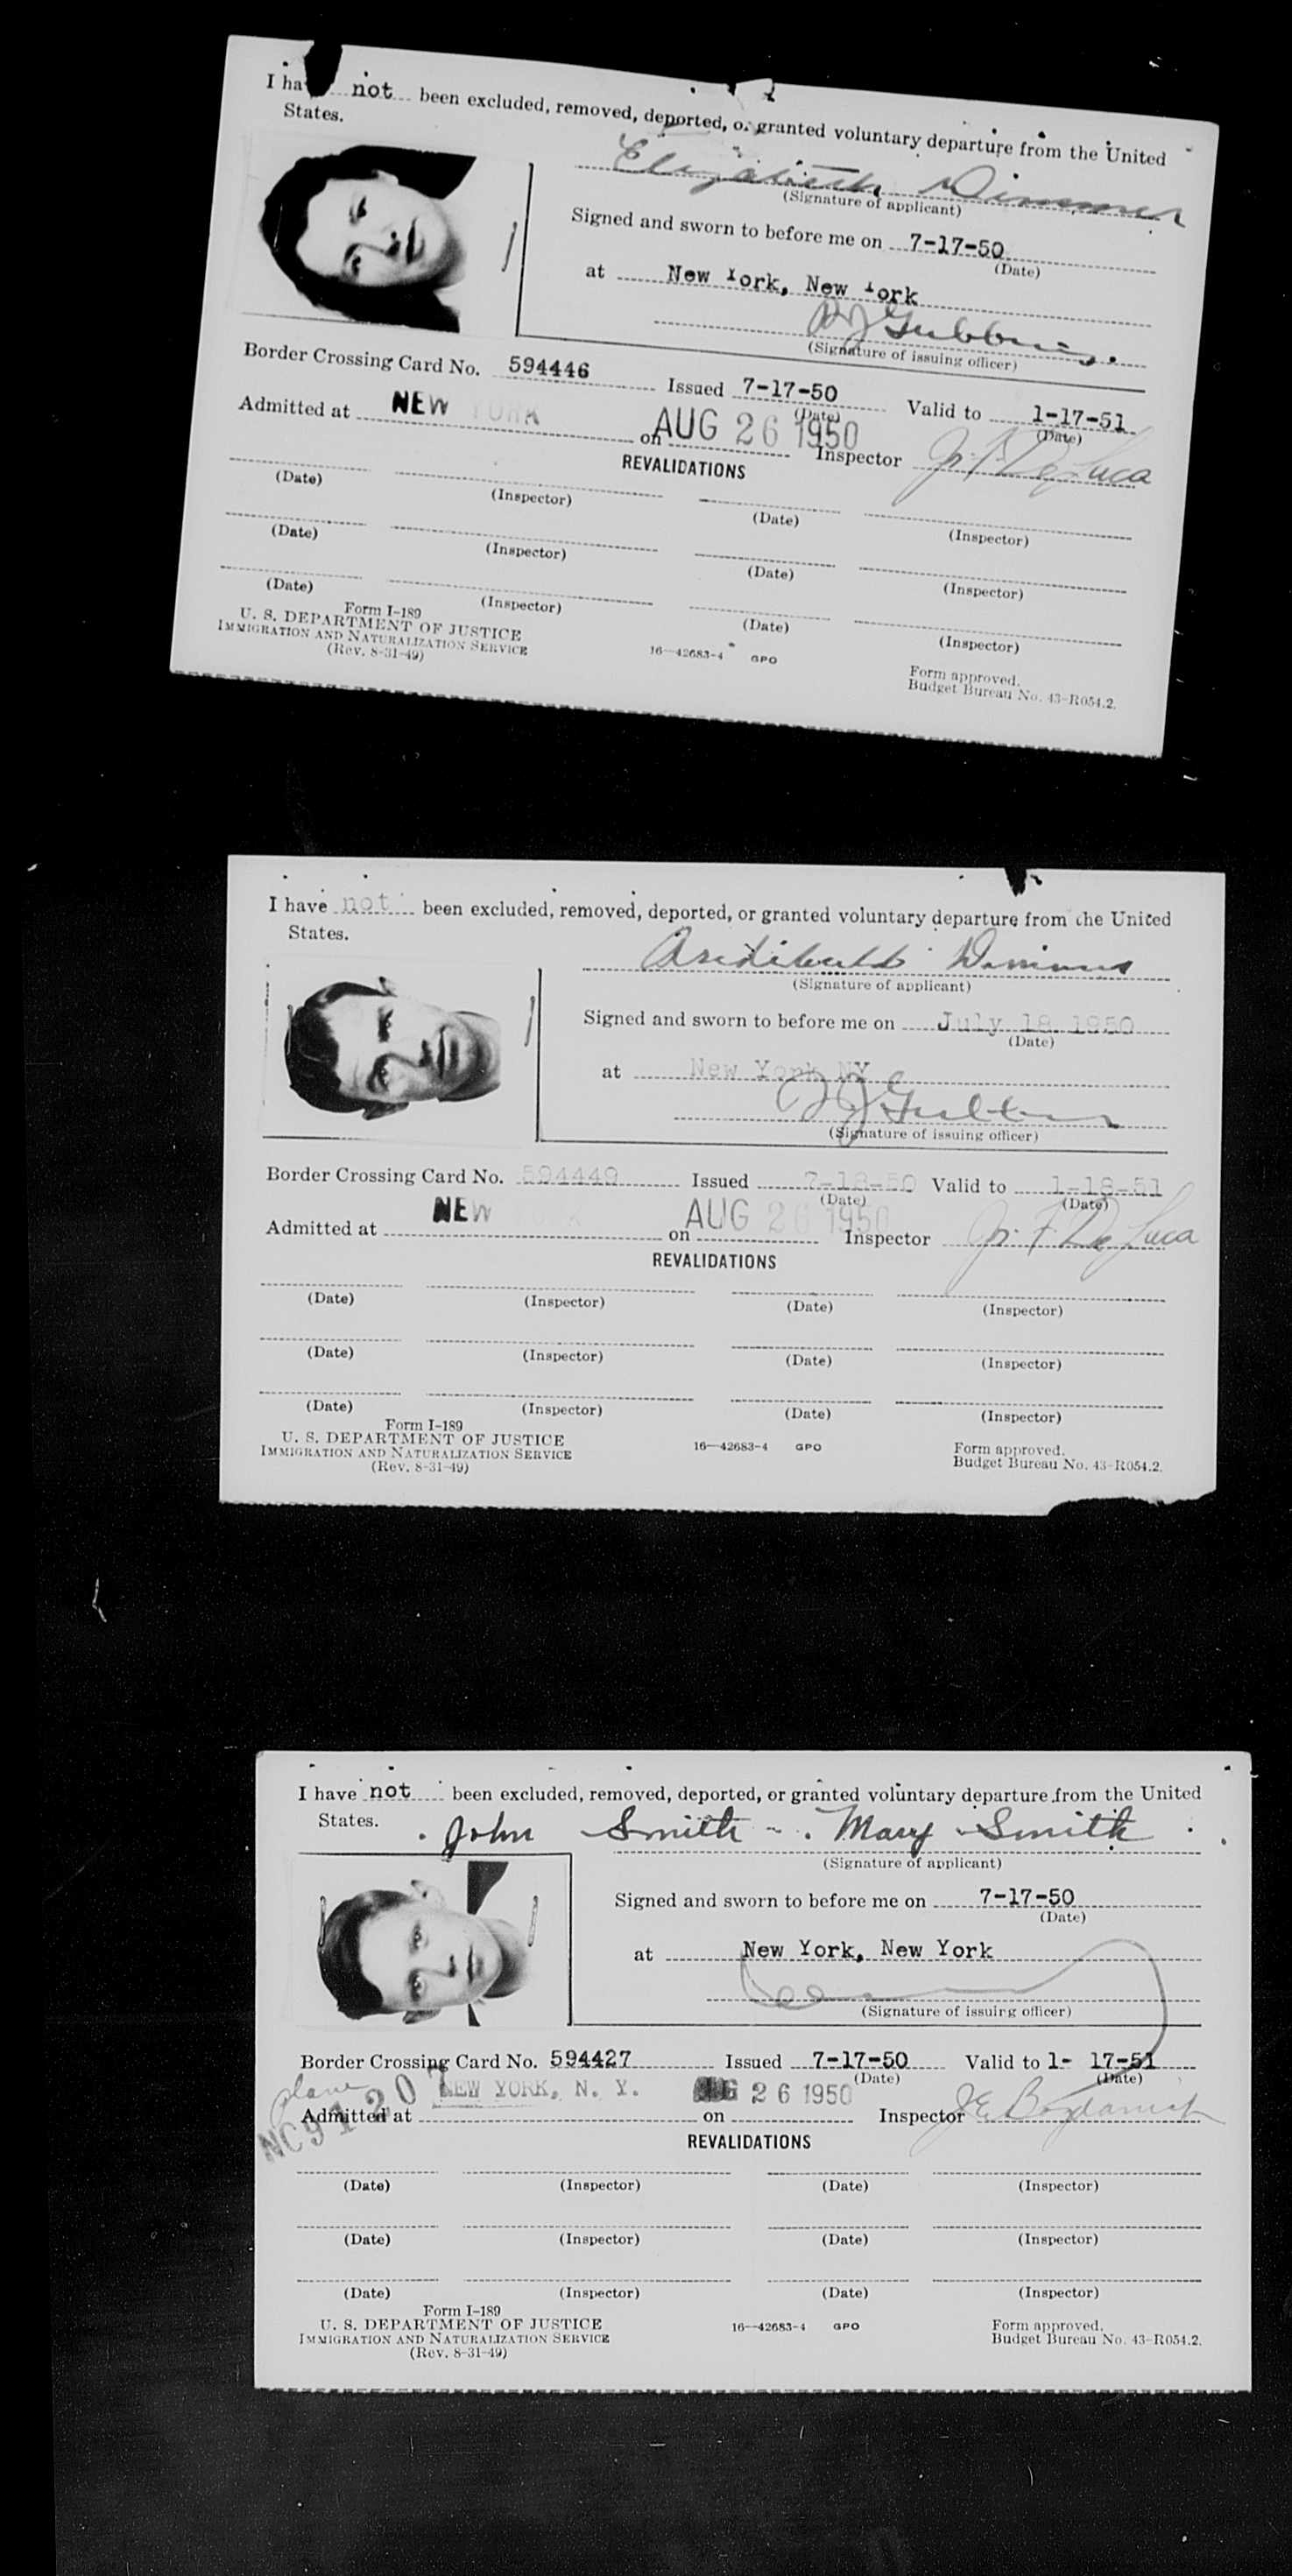 I ha not been excluded, removed, deported, or granted voluntary departure from the United
States.
Elizabeth Dimmer
(Signature of applicant)
Signed and sworn to before me on 7-17-50
(Date)
at New York, New York
Gubbins.
(Signature of issuing officer)
Border Crossing Card No. 594446 Issued 7-17-50 Valid to 1-17-51
(Date) (Date)
Admitted at NEW YORK on AUG 26 1950 Inspector De Luca
REVALIDATIONS
(Date) (Inspector) (Date) (Inspector)
(Date) (Inspector) (Date) (Inspector)
(Date) (Inspector) (Date) (Inspector)
Form I-189
U. S. DEPARTMENT OF JUSTICE
IMMIGRATION AND NATURALIZATION SERVICE
(Rev. 8-31-49)
16—42683-4 GPO
Form approved.
Budget Bureau No. 43-R054.2.
I have not been excluded, removed, deported, or granted voluntary departure from the United
States.
Archibald Dimmer
(Signature of applicant)
Signed and sworn to before me on July 18 1950
(Date)
at New York NY
(Signature of issuing officer)
Border Crossing Card No. 594449 Issued 7-18-50 Valid to 1-18-51
(Date) (Date)
Admitted at NEW YORK on AUG 26 1950 Inspector De Luca
REVALIDATIONS
(Date) (Inspector) (Date) (Inspector)
(Date) (Inspector) (Date) (Inspector)
(Date) (Inspector) (Date) (Inspector)
Form I-189
U. S. DEPARTMENT OF JUSTICE
IMMIGRATION AND NATURALIZATION SERVICE
(Rev. 8-31-49)
16—42683-4 GPO
Form approved.
Budget Bureau No. 43-R054.2.
I have not been excluded, removed, deported, or granted voluntary departure from the United
States.
John Smith - Mary Smith
(Signature of applicant)
Signed and sworn to before me on 7-17-50
(Date)
at New York, New York
(Signature of issuing officer)
Border Crossing Card No. 594427 Issued 7-17-50 Valid to 1- 17-51
(Date) (Date)
plane NC91207
Admitted at NEW YORK, N. Y. on AUG 26 1950 Inspector
REVALIDATIONS
(Date) (Inspector) (Date) (Inspector)
(Date) (Inspector) (Date) (Inspector)
(Date) (Inspector) (Date) (Inspector)
Form I-189
U. S. DEPARTMENT OF JUSTICE
IMMIGRATION AND NATURALIZATION SERVICE
(Rev. 8-31-49)
16—42683-4 GPO
Form approved.
Budget Bureau No. 43-R054.2.